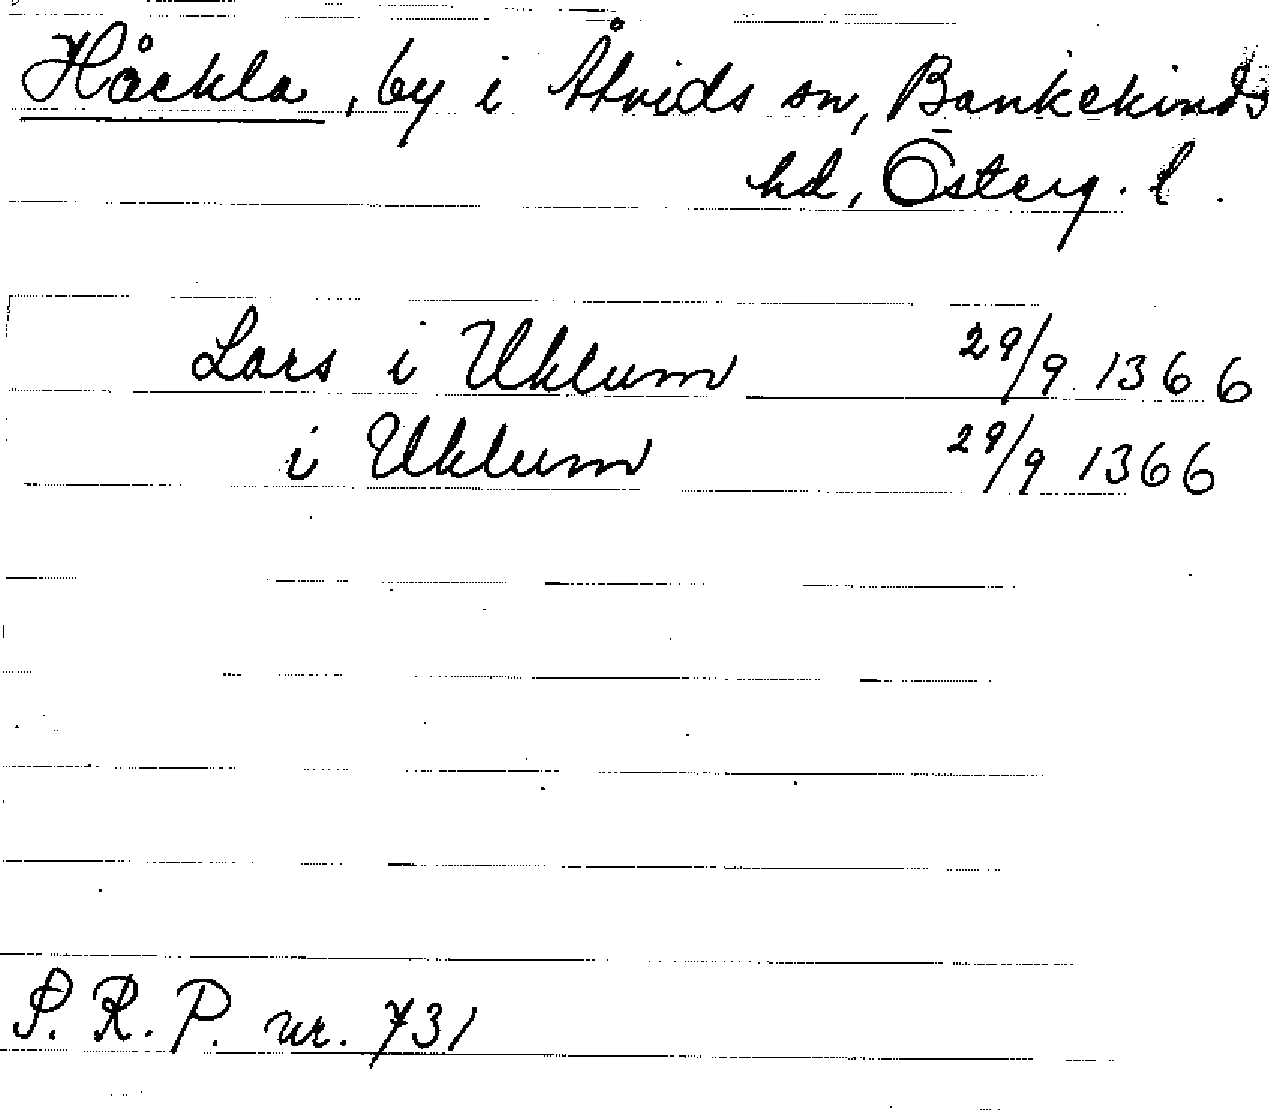 Håckla, by i Åtvids sn, Bankekinds
hd, Österg. l.
Lars i Uklum 29/9 1366
i Uklum 29/9 1366
S. R. P. nr. 731